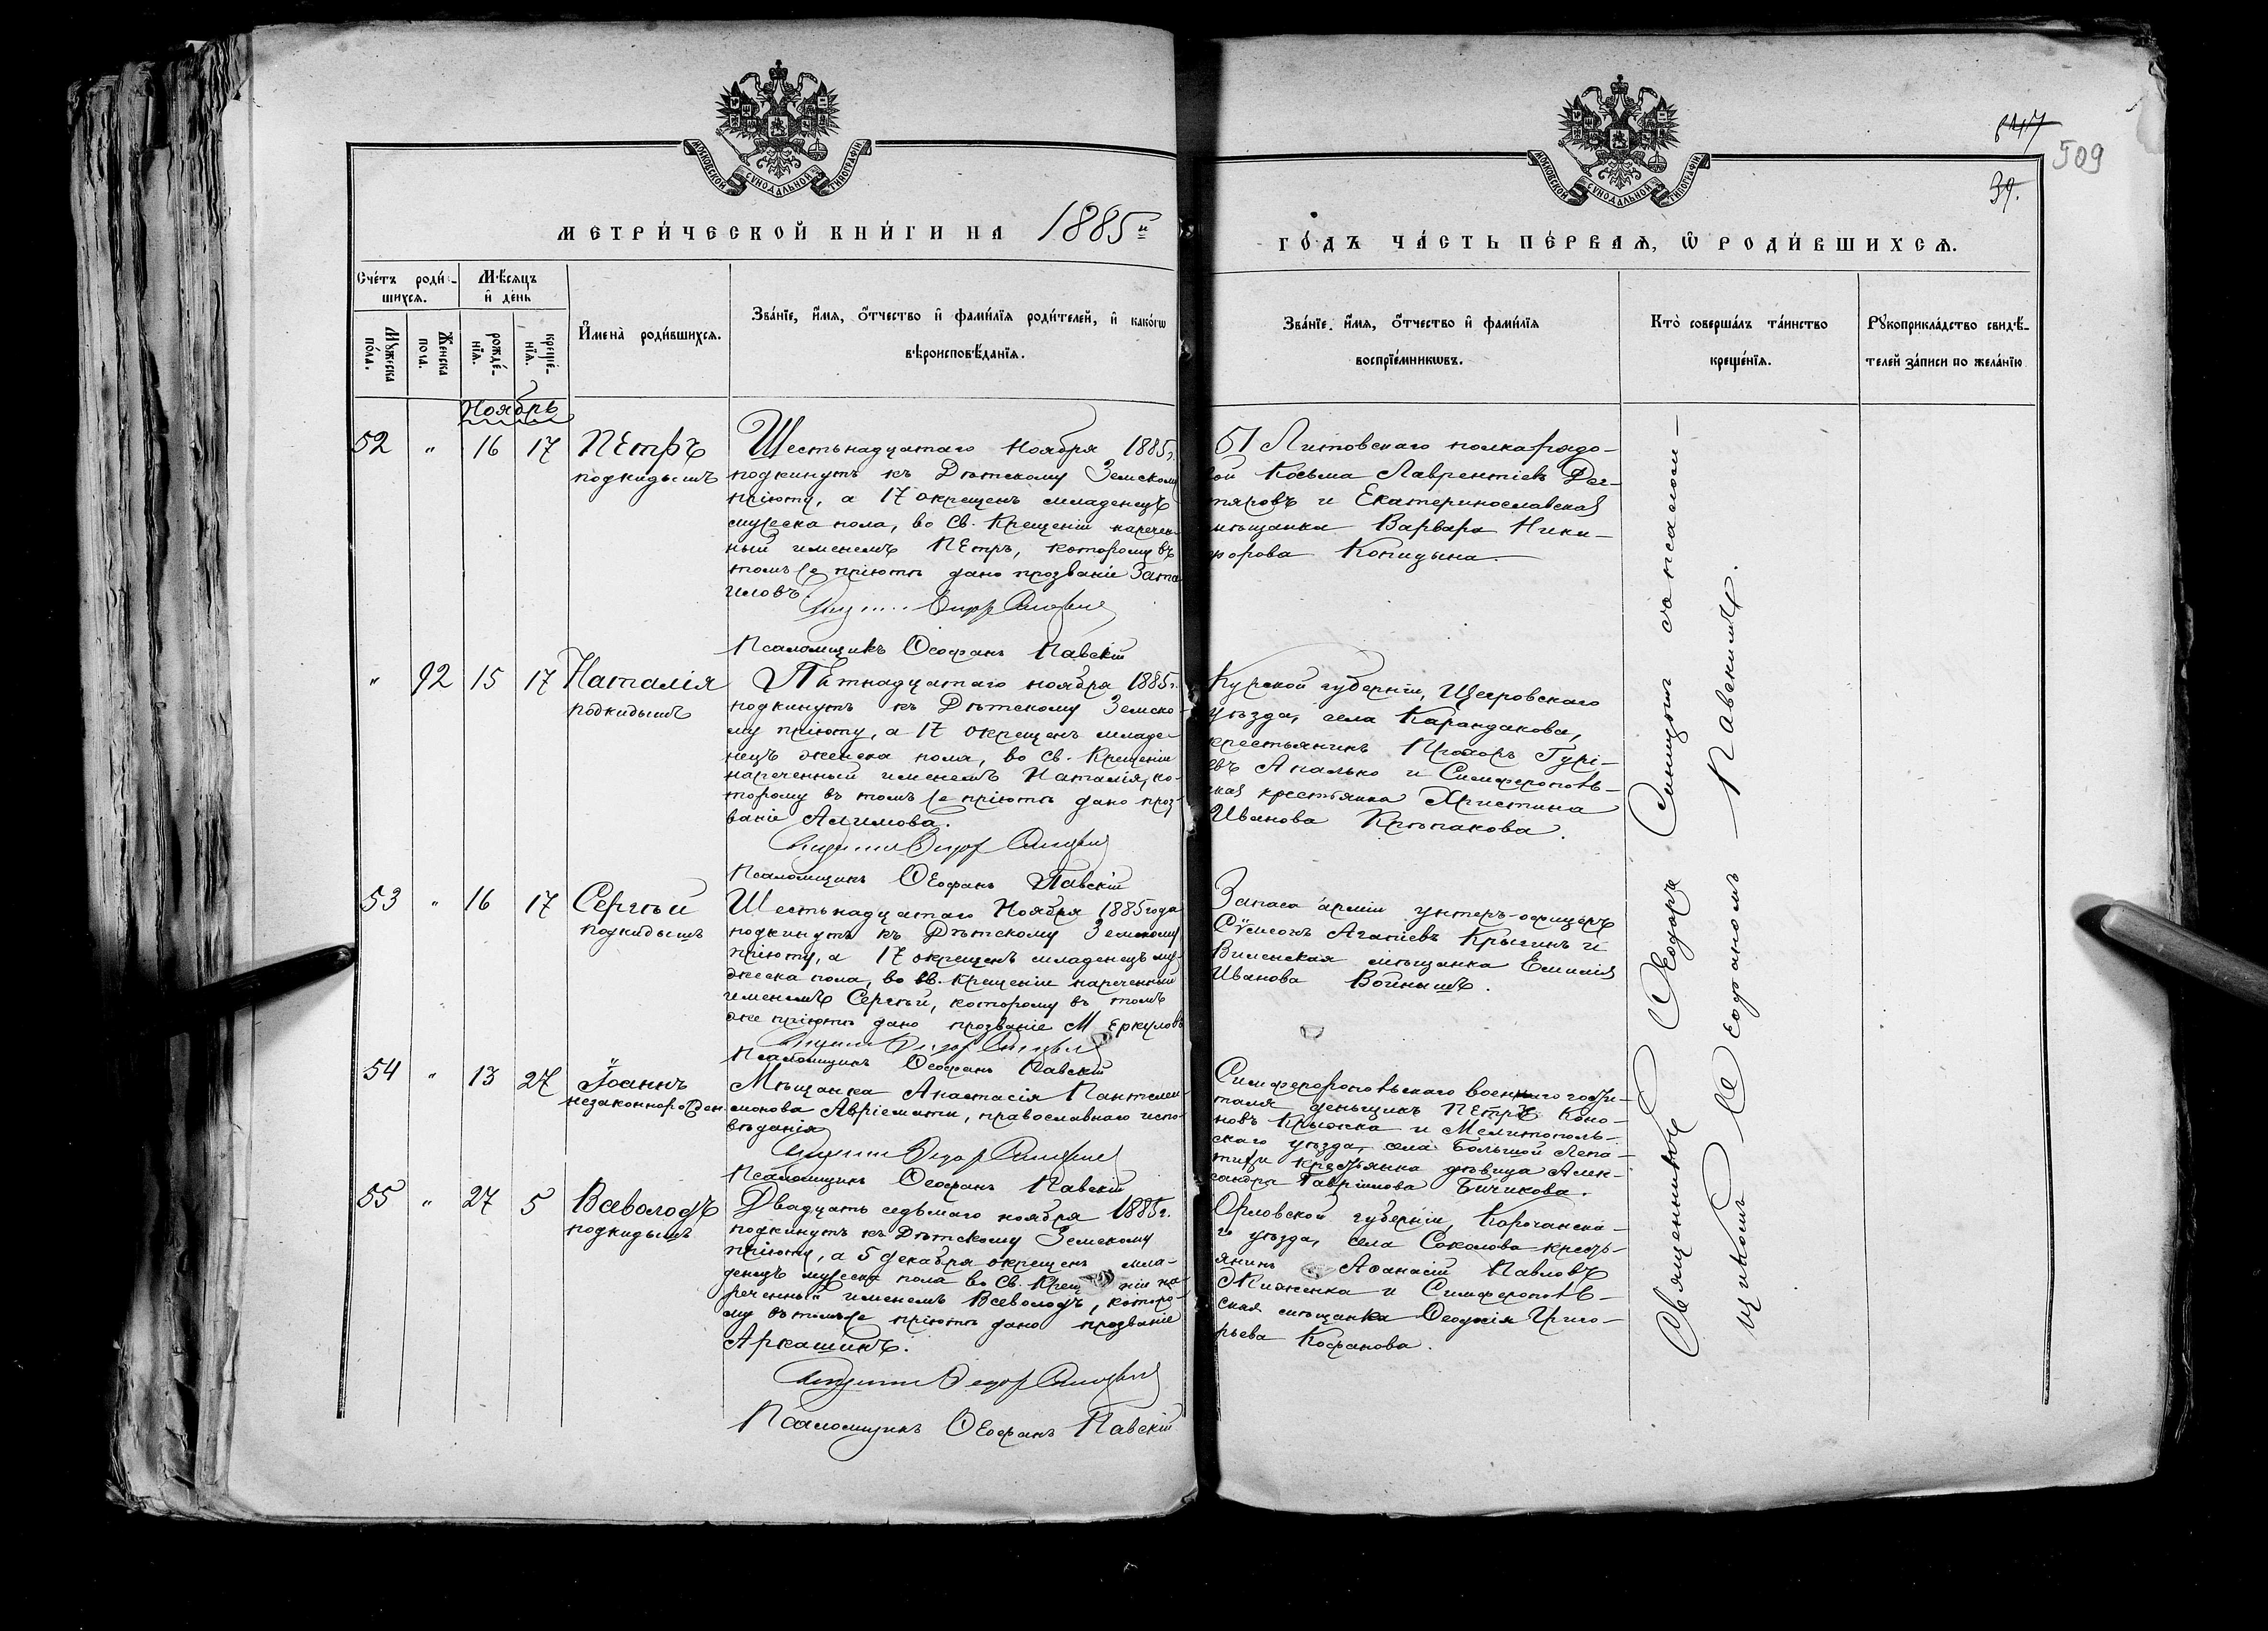 МОСКОВСКОЙ СѴНОДАЛЬНОЙ ТИПОГРАФІИ
МОСКОВСКОЙ СѴНОДАЛЬНОЙ ТИПОГРАФІИ
509
39.
МЕТРИ́ЧЕСКОЙ КНИ́ГИ НА 1885й
ГО́ДЪ ЧА́СТЬ ПЕ́РВАѦ, Ѡ РОДИ́ВШИХСѦ.
Сче́тъ роди́вшихсѧ.
Мꙋжеска по́ла.
Женска пола.
Мѣ́сѧцъ и҆ де́нь
рожде́нїѧ.
креще́нїѧ.
И҆мена̀ роди́вшихсѧ.
Зва́нїе, и҆́мѧ, ѻ҆́тчество и҆ фами́лїѧ роди́телей, и҆ како́гѡ
вѣроисповѣ́данїѧ.
Зва́нїе, и҆́мѧ, ѻ҆́тчество и҆ фами́лїѧ
воспрїе́мникѡвъ.
Кто̀ соверша́лъ та́инство
креще́нїѧ.
Рꙋкоприкла́дство свидѣ́-
телей за́писи по жела́нїю
Ноябрь
52 " 16 17 Петръ
подкидышъ
Шестьнадцатаго Ноября 1885г.
подкинутъ къ Дѣтскому Земскому
пріюту, а 17 окрещенъ младенецъ
мужеска пола, во Св. Крещеніи наречен-
ный именемъ Петръ, которому въ
томъ же пріютѣ дано прозваніе Зата
иловъ.
Псаломщикъ Ѳеофанъ Павскій
51 Литовскаго полка рядо-
вой Косьма Лаврентіевъ Дег-
тяровъ и Екатеринославская
мѣщанка Варвара Ники-
форова Копидына
" 92 15 17 Наталія
подкидышъ
Пятнадцатаго ноября 1885г.
подкинутъ къ Дѣтскому Земско-
му пріюту, а 17 окрещенъ младе-
нецъ женска пола, во Св. Крещеніи
нареченный именемъ Наталія, ко-
торому въ томъ же пріютѣ дано проз-
ваніе Алимова.
Псаломщикъ Ѳеофанъ Павскій
Курской губерніи, Щигровскаго
уѣзда, села Карандакова,
крестьянинъ Прохоръ Гурі-
евъ Апалько и Симферополь-
ская крестьянка Христина
Иванова Крѣпакова.
53 " 16 17 Сергѣй
подкидышъ
Шестьнадцатаго Ноября 1885 года
подкинутъ къ Дѣтскому Земскому
пріюту, а 17 окрещенъ младенецъ му-
жеска пола, во св. Крещеніи нареченный
именемъ Сергѣй, которому въ томъ
же пріютѣ дано прозваніе Меркуловъ
Псаломщикъ Ѳеофанъ Павскій
Запаса арміи унтеръ-офицеръ
Сѵмеонъ Агапіевъ Крыгинъ и
Виленская мѣщанка Емилія
Иванова Войнышъ.
54 " 13 27 Іоаннъ
незаконнорожден.
Мѣщанка Анастасія Пантелей
монова Авріемати, православнаго испо-
вѣданія
Псаломщикъ Ѳеофанъ Павскій
Симферопольскаго военнаго госпи-
таля деньщикъ Петръ Коно-
новъ Крыжка и Мелитополь-
скаго уѣзда, села Большой Лепа-
тихи крестьянка дѣвица Алек-
сандра Гавріилова Бичикова.
55 " 27 5 Всеволодъ
подкидышъ
Двадцать седьмаго ноября 1885г.
подкинутъ къ Дѣтскому Земскому
пріюту, а 5 декабря окрещенъ мла-
денецъ мужеска пола во Св. Крещеніи на-
реченный именемъ Всеволодъ, которо-
му въ томъ же пріютѣ дано прозваніе
Аркашинъ.
Псаломщикъ Ѳеофанъ Павскій
Орловской губерніи, Корочанска-
го уѣзда, села Соколова кресть-
янинъ Аѳанасій Павловъ
Мияненка и Симферополь-
ская мѣщанка Ѳеодосія Григо-
рьева Кофанова.
Священникъ Ѳеодоръ Синицынъ съ псалом-
щикомъ Ѳеофаномъ Павскимъ.